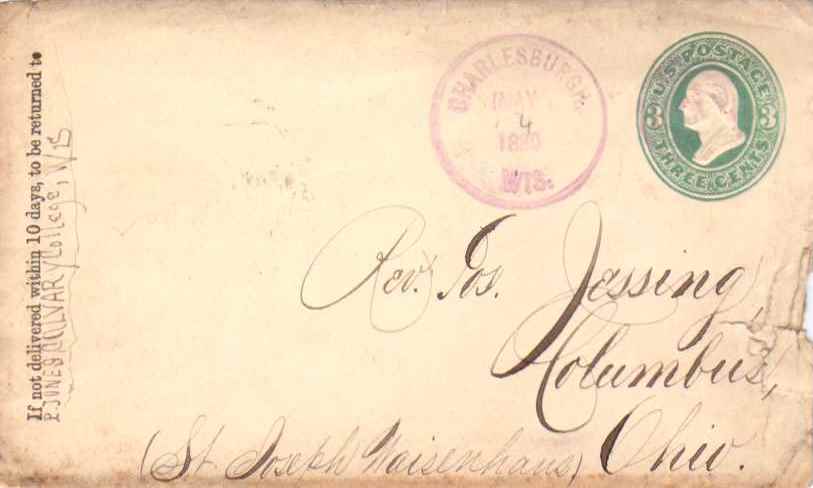 If not delivered within 10 days, to be returned to
CALVARY College, Wis
CHARLESBURGH,
MAY
4
1880
WIS.
U.S. POSTAGE
3 3
THREE CENTS
Rev. Jos. Jessing,
Columbus,
Ohio.
(St Joseph Waisenhaus)